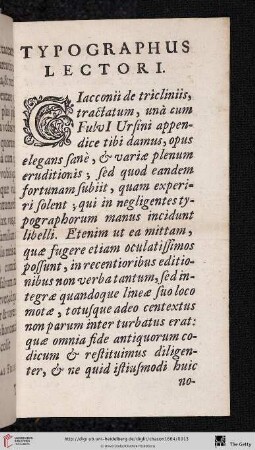 TYPOGRAPHUS
LECTORI.
CIacconii de tricliniis,
tractatum, unà cum
FulvI Ursini appen-
dice tibi damus, opus
elegans sanè, & variæ plenum
eruditionis, sed quod eandem
fortunam subiit, quam experi-
ri solent, qui in negligentes ty-
pographorum manus incidunt
libelli. Etenim ut ea mittam,
quæ fugere etiam oculatissimos
possunt, in recentioribus editio-
nibus non verba tantum, sed in-
tegræ quandoque lineæ suo loco
motæ, totusque adeo contextus
non parum inter turbatus erat:
quæ omnia fide antiquorum co-
dicum & restituimus diligen-
ter, & ne quid istiusmodi huic
no-
UNIVERSITÄTS-
BIBLIOTHEK
HEIDELBERG
The Getty